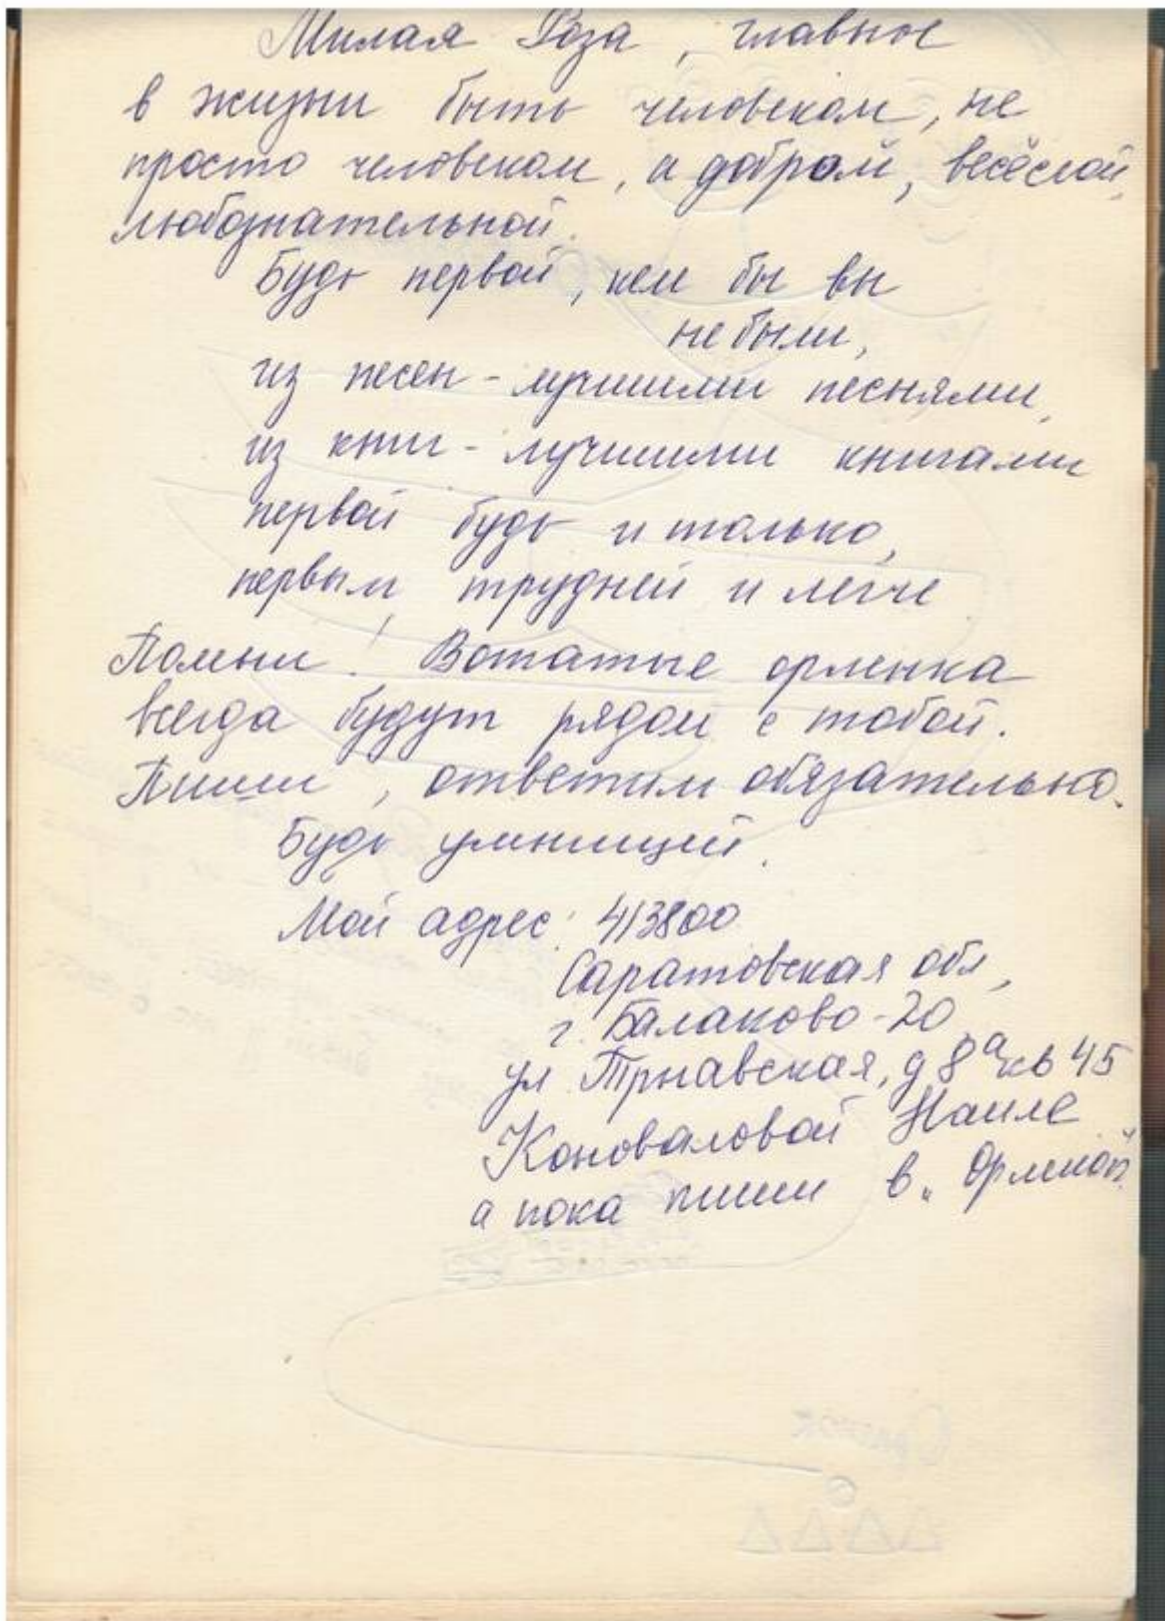 Милая Роза, главное
в жизни быть человеком, не
просто человеком, а доброй, весёлой,
любознательной.
Будь первой, кем бы вы
не были,
из песен - лучшими песнями,
из книг - лучшими книгами
первой будь и только,
первым трудней и легче
Помни! Вожатые орленка
всегда будут рядом с тобой.
Пиши, ответим обязательно.
Будь умницей.
Мой адрес: 413800
Саратовская обл,
г. Балаково-20
ул Трнавская, д 8а кв 45
Коноваловой Наиле
а пока пиши в „Орленок"